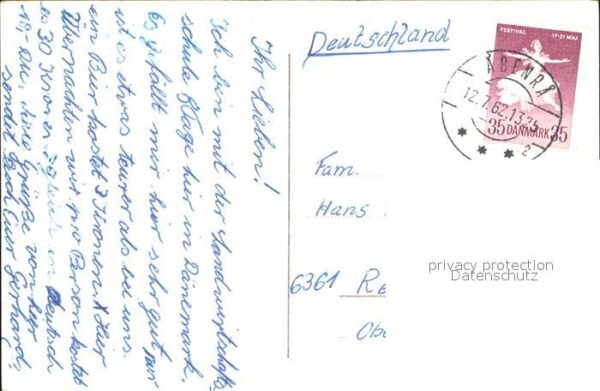 Ihr Lieben!
Ich bin mit der Landwirtschafts
schule 8 Tage hier in Dänemark.
Es gefällt mir hier sehr gut nur
ist es etwas teurer als bei uns.
ein Bier kostet 3 Kronen. Hier
Übernachten wir pro Person kostet
es 30 Kronen in Deutsch
18 DM, viele Grüße von hier
sendet Euch Euer Gerhard,
Deutschland
FESTIVAL 17-31 MAJ
35 DANMARK 35
ÅBENRÅ
12.7.62.13
2
Fam.
Hans
6361 Re
Obe
privacy protection
Datenschutz